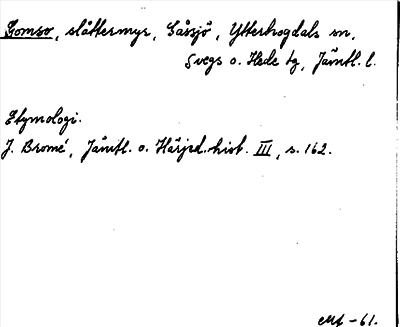 Gomso, slåttermyr, Gåssjö, Ytterhogdals sn,
Svegs o. Hede tg, Jämtl. l.
Etymologi.
J. Bromé, Jämtl. o. Härjed. hist. III, s. 162.
-61.